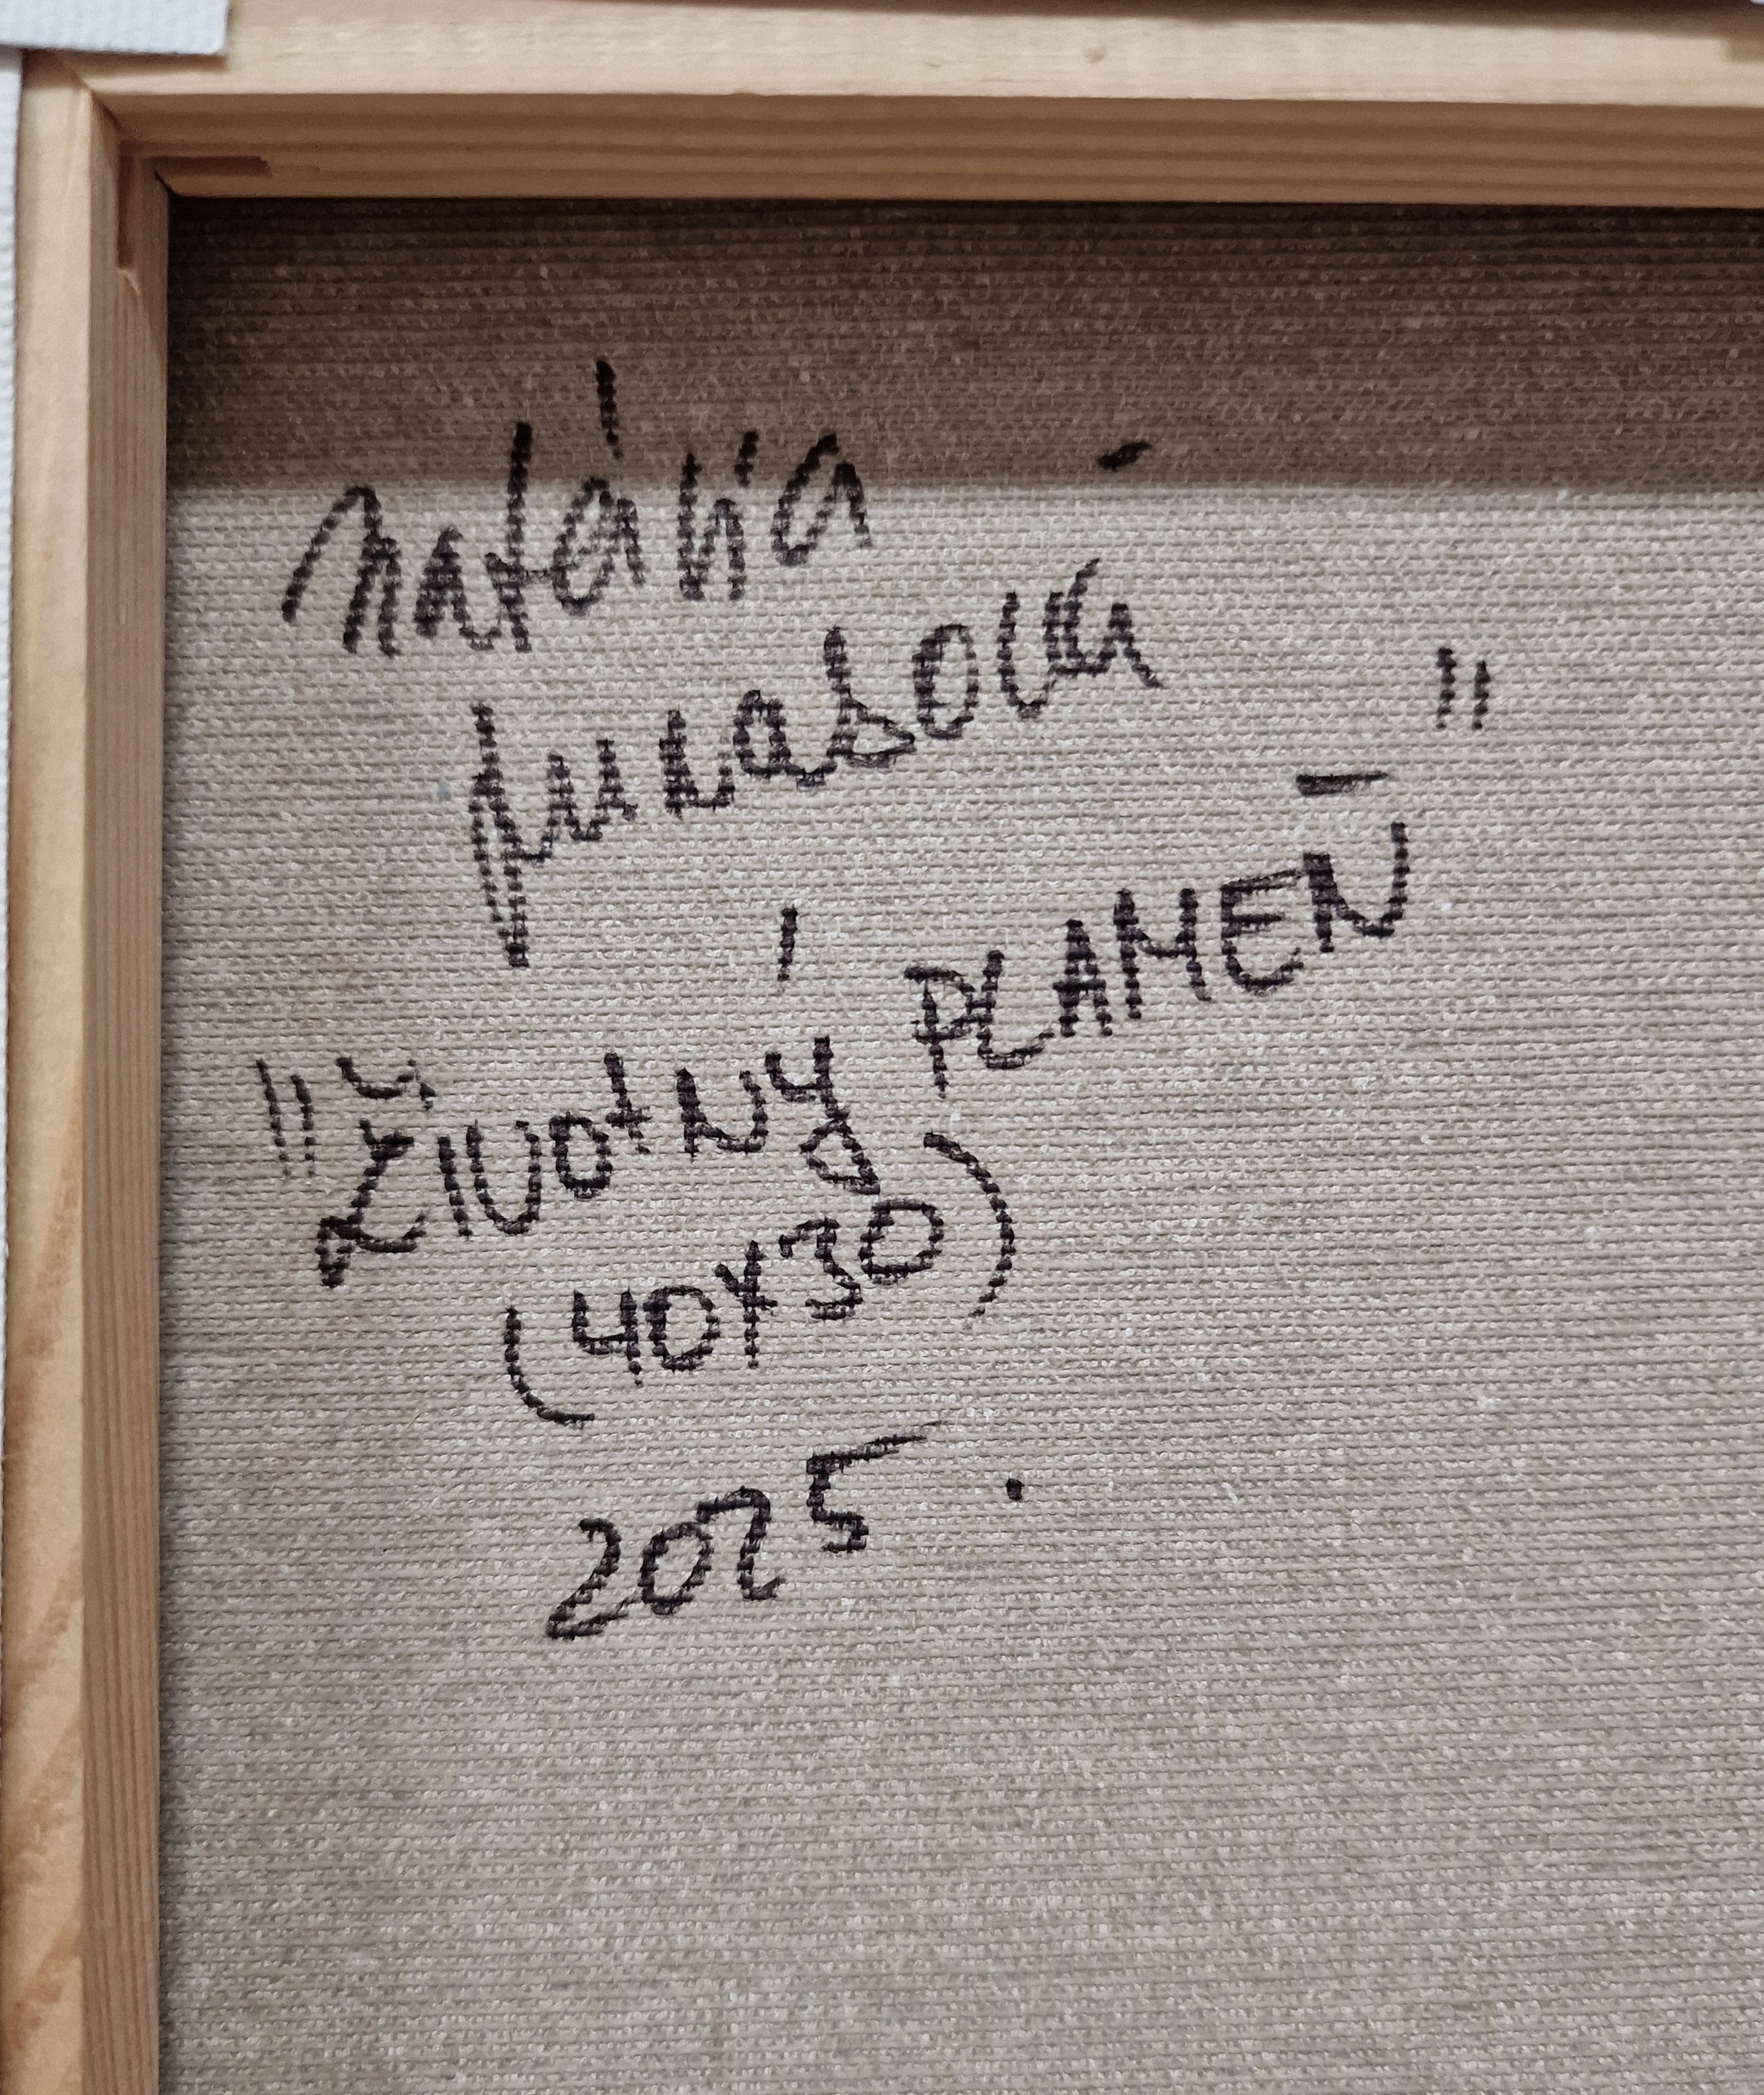 Natália
"ŽIVOTNÝ PLAMEŇ"
(40x30)
2025.